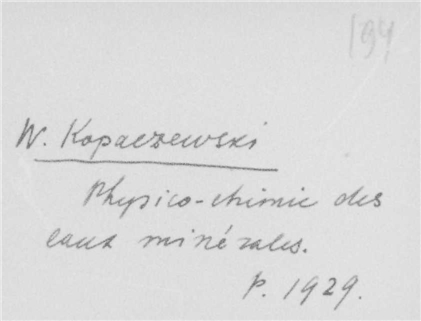 194
W. Kopaczewski
Physico-chimie des
eaux minérales.
P. 1929.